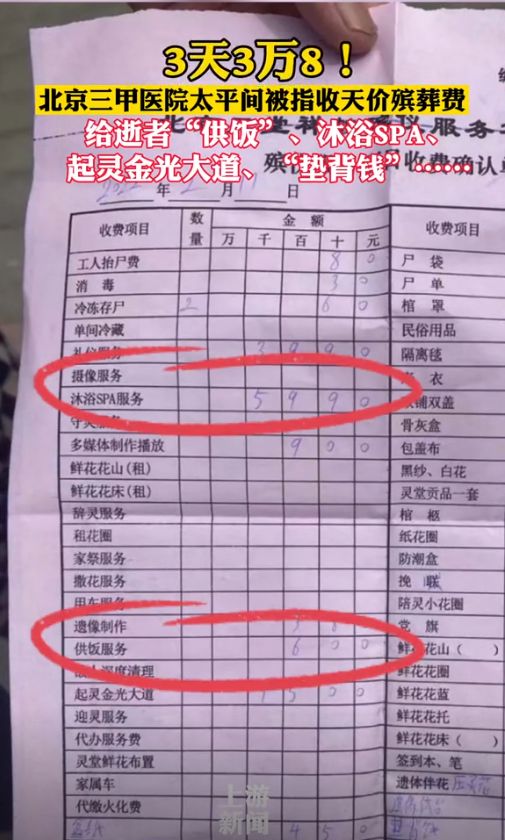 3天3万8！
北京三甲医院太平间被指收天价殡葬费
给逝者“供饭”、沐浴SPA、
起灵金光大道、“垫背钱”……
年 2 月 日
收费项目 数量 金额 收费项目
万 千 百 十 元
工人抬尸费 8 0 尸袋
消毒 3 0 尸单
冷冻存尸 2 6 0 棺罩
单间冷藏 民俗用品
礼仪服务 3 9 9 0 隔离毯
摄像服务
沐浴SPA服务 5 9 9 0 铺双盖
守灵服务 骨灰盒
多媒体制作播放 9 0 0 包盖布
鲜花花山(租) 黑纱、白花
鲜花花床(租) 灵堂贡品一套
辞灵服务 棺柩
租花圈 纸花圈
家祭服务 防潮盒
撒花服务 挽联
用车服务 陪灵小花圈
遗像制作 党旗
供饭服务 6 0 0 鲜花花山( )
深度清理 鲜花花圈
起灵金光大道 1 5 0 0 鲜花花蓝
迎灵服务 鲜花花托
代办服务费 鲜花花床( )
灵堂鲜花布置 签到本、笔
家属车 遗体伴花
代缴火化费
4 5 0
上游
新闻